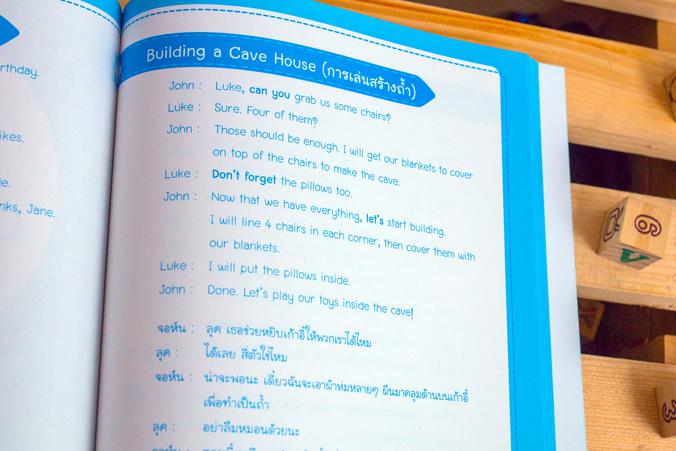 rthday.
ikes.
le.
nks, Jane.
Building a Cave House (การเล่นสร้างถ้ำ)
John : Luke, can you grab us some chairs?
Luke : Sure. Four of them?
John : Those should be enough. I will get our blankets to cover
on top of the chairs to make the cave.
Luke : Don't forget the pillows too.
John : Now that we have everything, let's start building.
I will line 4 chairs in each corner, then cover them with
our blankets.
Luke : I will put the pillows inside.
John : Done. Let's play our toys inside the cave!
จอห์น : ลุค เธอช่วยหยิบเก้าอี้ให้พวกเราได้ไหม
ลุค : ได้เลย สี่ตัวใช่ไหม
จอห์น : น่าจะพอนะ เดี๋ยวฉันจะเอาผ้าห่มหลายๆ ผืนมาคลุมด้านบนเก้าอี้
เพื่อทำเป็นถ้ำ
ลุค : อย่าลืมหมอนด้วยนะ